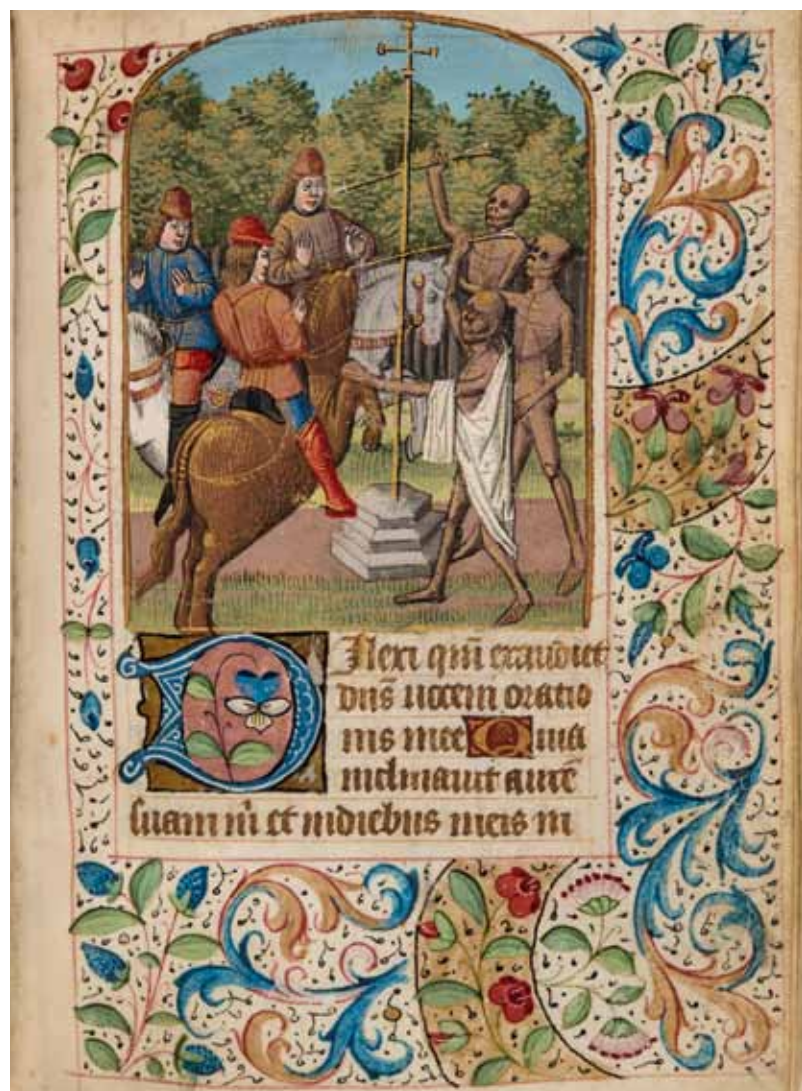 Dilexi qm̄ exaudiet
dn̄s uocem oratio
nis mee Quia
inclinauit aurē
suam m̄ et in diebus meis in